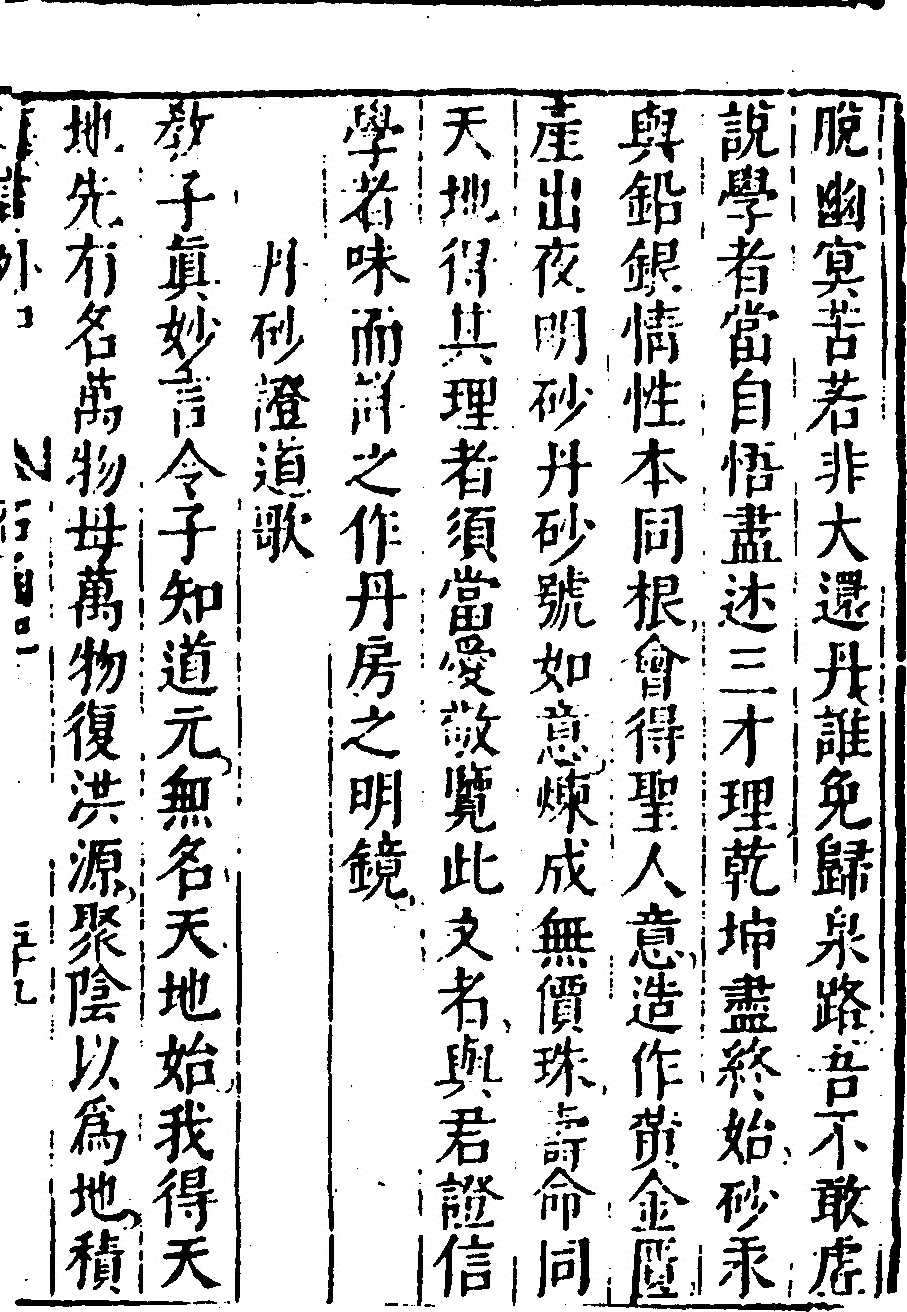 脫幽冥苦若非大還丹誰免歸泉路吾不敢虛
說學者當自悟盡述三才理乾坤盡終始砂汞
與鉛銀情性本同根會得聖人意造作黄金匱
產出夜明砂丹砂號如意煉成無價珠壽命同
天地得其理者須當愛敬覽此文者與君證信
學者味而詳之作丹房之明鏡
丹砂證道歌
教子眞妙言令子知道元無名天地始我得天
地先有名萬物母萬物復洪源聚陰以爲地積